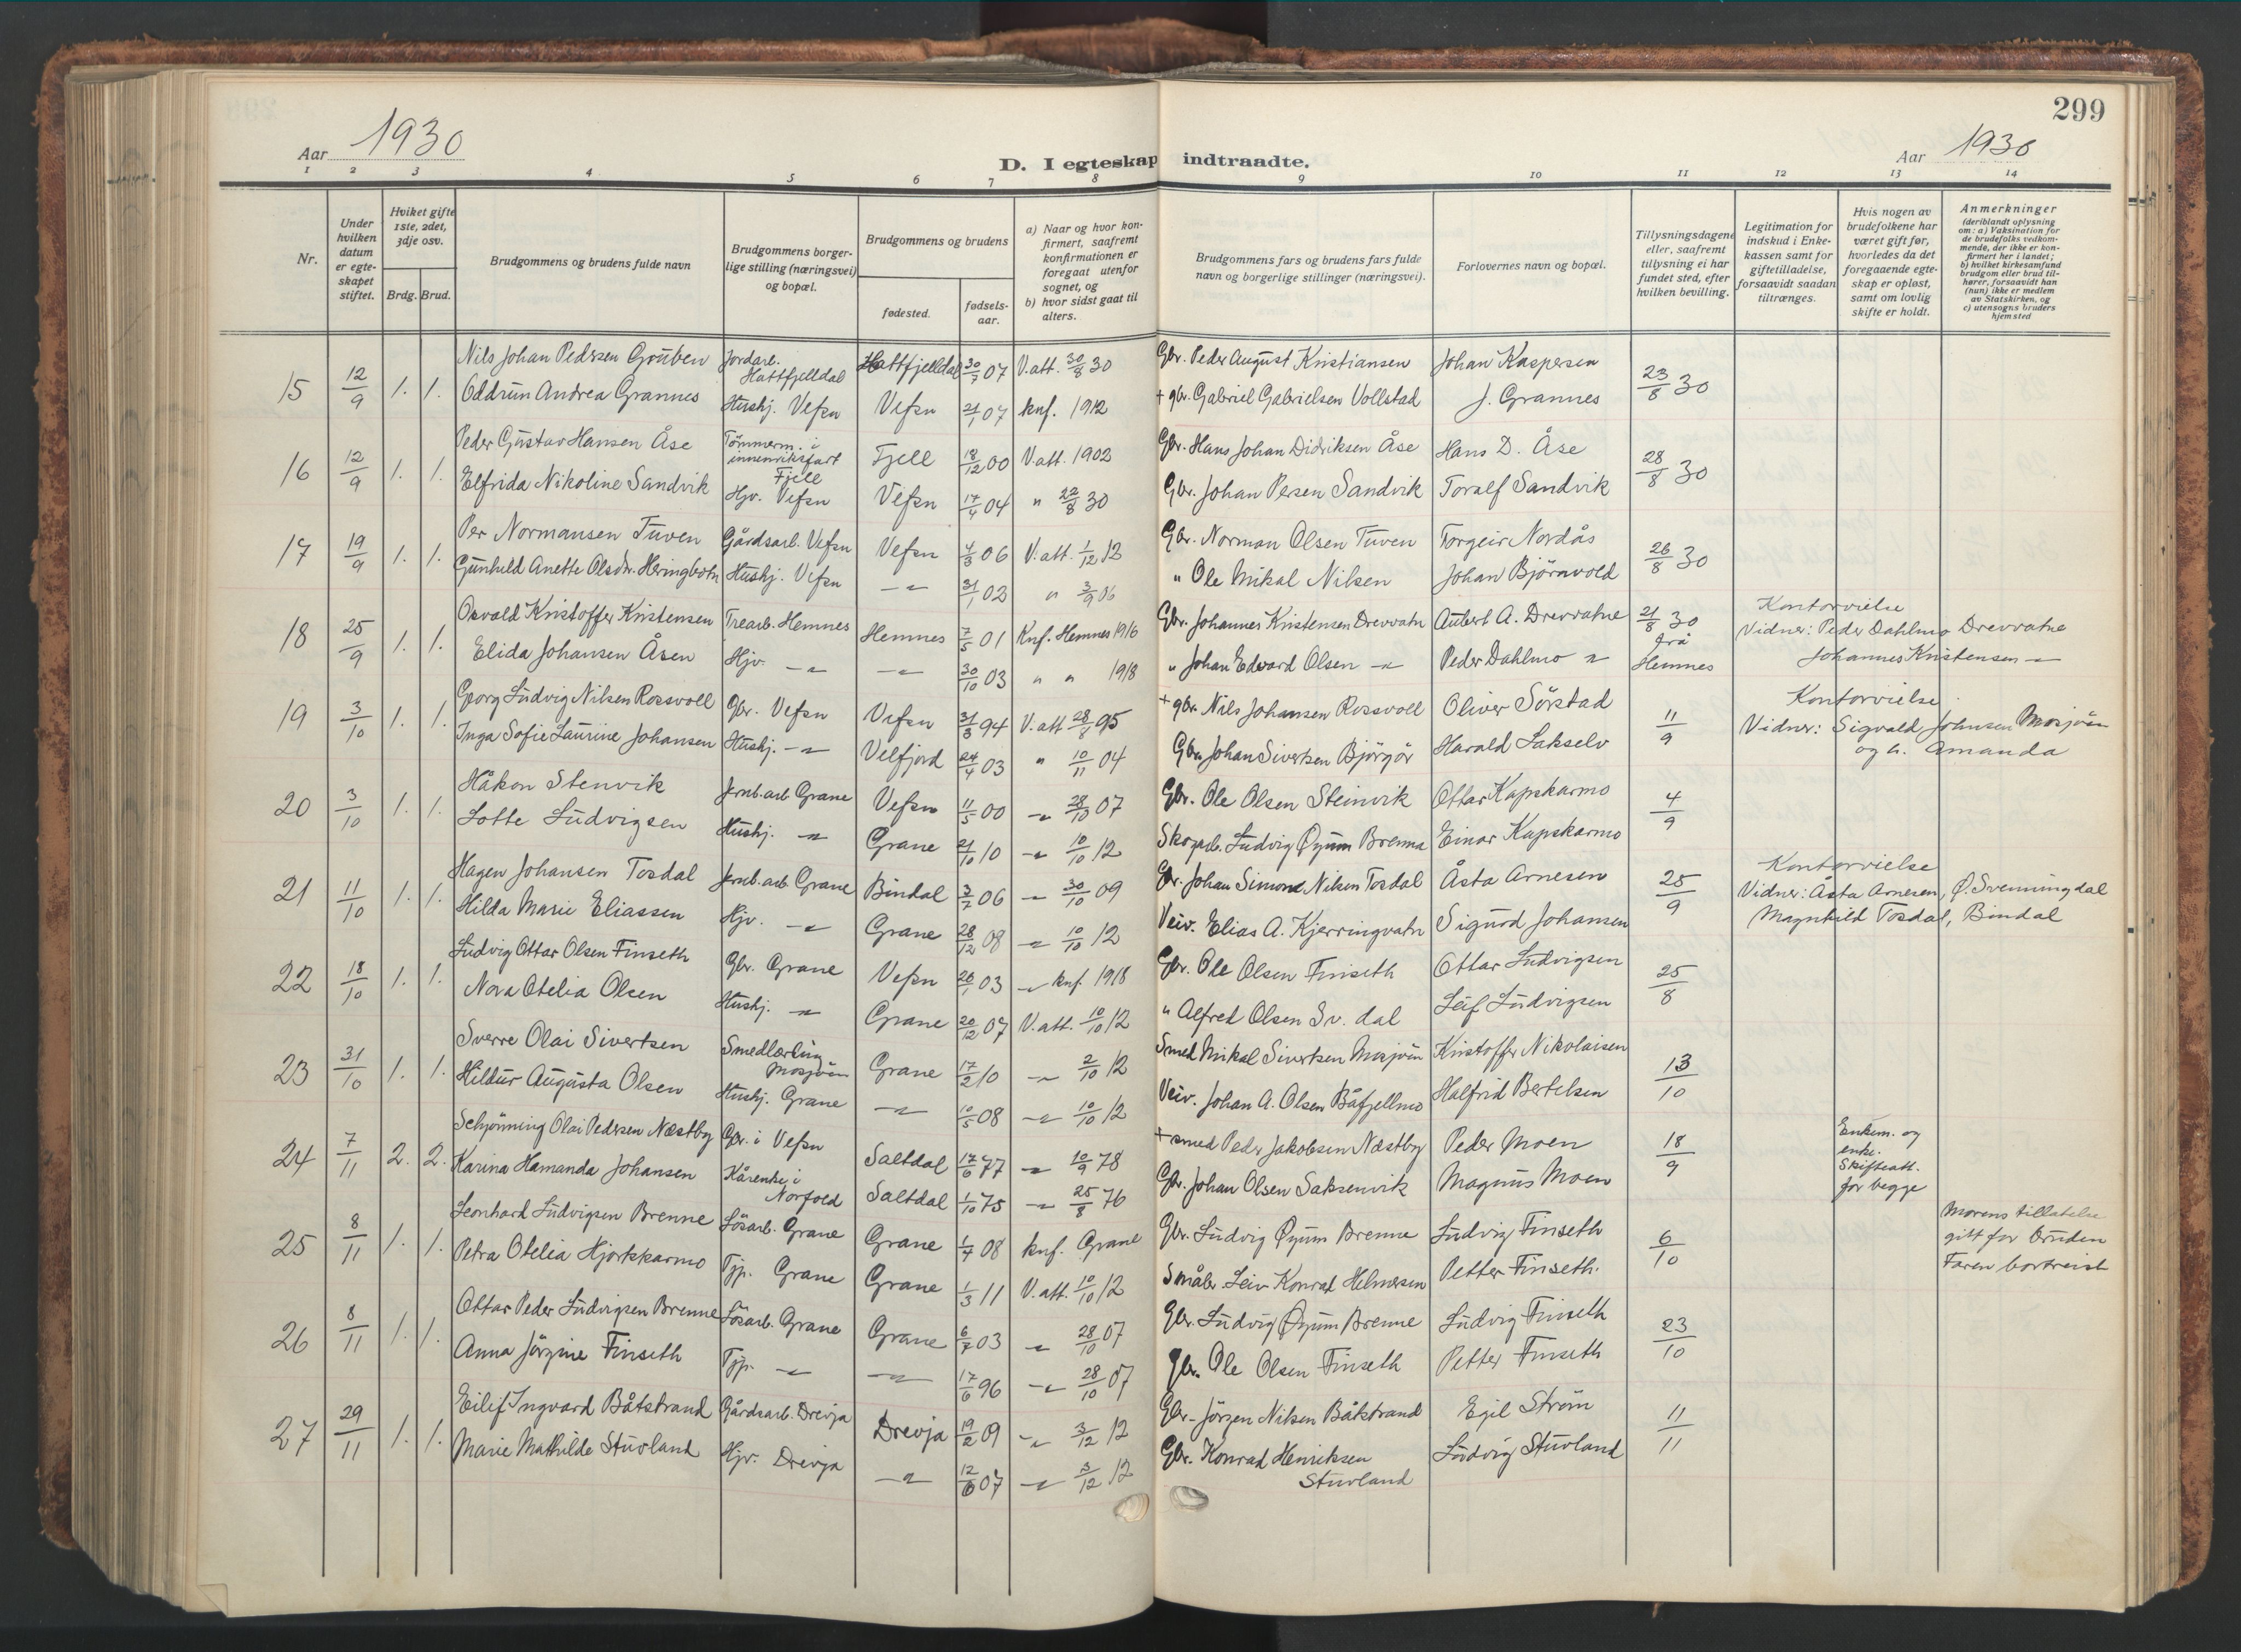 299
Aar 1930
D. I egteskap indtraadte.
Aar 1930
1 2 3 4 5 6 7 8 9 10 11 12 13 14
Nr.
Under hvilken datum er egteskapet stiftet.
Hviket gifte 1ste, 2det, 3dje osv.
Brdg. Brud.
Brudgommens og brudens fulde navn
Brudgommens borgerlige stilling (næringsvei) og bopæl.
Brudgommens og brudens
fødested.
fødselsaar.
a) Naar og hvor konfirmert, saafremt konfirmationen er foregaat utenfor sognet, og
b) hvor sidst gaat til alters.
Brudgommens fars og brudens fars fulde navn og borgerlige stillinger (næringsvei).
Forlovernes navn og bopæl.
Tillysningsdagene eller, saafremt tillysning ei har fundet sted, efter hvilken bevilling.
Legitimation for indskud i Enkekassen samt for giftetilladelse, forsaavidt saadan tiltrænges.
Hvis nogen av brudefolkene har været gift før, hvorledes da det foregaaende egteskap er opløst, samt om lovlig skifte er holdt.
Anmerkninger
(deriblandt oplysning om: a) Vaksination for de brudefolks vedkommende, der ikke er konfirmert her i landet; b) hvilket kirkesamfund brudgom eller brud tilhører, forsaavidt han (hun) ikke er medlem av Statskirken, og c) utensogns bruders hjemsted
15 12/9 1. 1. Nils Johan Pedersen Grouben Jordarb. Hattfjelldal Hattfjelldal 30/7 07 V.att. 30/8 30 Gbr. Peder August Kristiansen Johan Kaspersen 23/8 30
Oddrun Andrea Grannes Hushj. Vefsn Vefsn 21/1 07 knf. 1912 + gbr. Gabriel Gabrielsen Vollstad J. Grannes
16 12/9 1. 1. Peder Gustav Hansen Åse Tömmerm. i innenriksfart Fjell Fjell 18/12 00 V.att. 1902 Gbr. Hans Johan Didriksen Åse Hans D. Åse 28/8 30
Elfrida Nikoline Sandvik Hjv. Vefsn Vefsn 17/4 04 " 22/8 30 Gbr. Johan Persen Sandvik Toralf Sandvik
17 19/9 1. 1. Per Normansen Tuven Gårdsarb. Vefsn Vefsn 4/3 06 V.att. 1/12 12 Gbr. Norman Olsen Tuven Torgeir Nordås 26/8 30
Gunhild Anette Olsdtr. Heringbotn Hushj. Vefsn —"— 31/1 02 " 3/9 06 " Ole Mikal Nilsen Johan Björnvold
18 25/9 1. 1. Osvald Kristoffer Kristensen Trearb. Hemnes Hemnes 7/5 01 Knf. Hemnes 1916 Gbr. Johannes Kristensen Drevvatn Aubert A. Drevvatne 21/8 30 frå Hemnes Kontorvielse
Vidner: Peder Dahlmo Drevvatne
Johannes Kristensen —"—
Elida Johansen Åsen Hjv. —"— —"— 30/10 03 " " 1918 " Johan Edvard Olsen —"— Peder Dahlmo "
19 3/10 1. 1. Georg Ludvig Nilsen Rossvoll Gbr. Vefsn Vefsn 31/3 94 V.att 28/8 95 + gbr. Nils Johansen Rossvoll Oliver Sörstad 11/9 Kontorvielse.
Vidner: Sigvald Johansen Mosjöen
og h. Amanda
Inga Sofie Laurine Johansen Hushj. —"— Velfjord 24/4 03 " 10/11 04 Gbr. Johan Sivertsen Björgör Harald Lakselv
20 3/10 1. 1. Håkon Stenvik Jernb.arb Grane Vefsn 11/5 00 —"— 28/10 07 Gbr. Ole Olsen Steinvik Ottar Kapskarmo 4/9
Lotte Ludvigsen Hushj. —"— Grane 21/10 10 —"— 10/10 12 Skogarb. Ludvig Øyum Brenna Einar Kapskarmo
21 11/10 1. 1. Hagen Johansen Tosdal Jernb.arb Grane Bindal 3/7 06 — 30/10 09 Gbr. Johan Simon Nilsen Tosdal Åsta Arnesen 25/9 Kontorvielse
Vidner: Åsta Arnesen, Ø. Svenningdal
Magnhild Tosdal, Bindal
Hilda Marie Eliassen Hjv. —"— Grane 28/12 08 —"— 10/10 12 Veiv. Elias A. Kjerringvatn Sigurd Johansen
22 18/10 1. 1. Ludvig Ottar Olsen Finseth Gbr. Grane Vefsn 26/1 03 —"— knf. 1918 Gbr. Ole Olsen Finseth Ottar Ludvigsen 25/8
Nora Otelia Olsen Hushj. —"— Grane 20/12 07 V.att. 10/10 12 " Alfred Olsen Sv. dal Leif Ludvigsen
23 31/10 1. 1. Sverre Olai Sivertsen Smedlærling Mosjöen Grane 17/2 10 —"— 2/10 12 Smed Mikal Sivertsen Mosjöen Kristoffer Nikolaisen 13/10
Hildur Augusta Olsen Hushj. Grane —"— 10/5 08 —"— 10/10 12 Veiv. Johan A. Olsen Båfjellmo Halfrid Bertelsen
24 7/11 2. 2. Schjönning Olai Pedersen Næstby Gbr. i Vefsn Saltdal 17/6 77 —"— 10/9 78 + smed Peder Jakobsen Næstby Peder Moen 18/9 Enkem. og enke. Skifteatt. for begge
Karina Hamanda Johansen Kårenke i Norfold Saltdal 1/10 75 —"— 25/8 76 Gbr. Johan Olsen Saksenvik Magnus Moen
25 8/11 1. 1. Leonhard Ludvigsen Brenne Lösarb. Grane Grane 1/4 08 knf. Grane Gbr. Ludvig Øyum Brenne Ludvig Finseth 6/10 Morens tillatelse
gitt for bruden
Faren bortreist
Petra Otelia Hjortskarmo Tjp. Grane Grane 1/3 11 V.att. 10/10 12 Småbr. Leiv Konrad Helmersen Petter Finseth.
26 8/11 1. 1. Ottar Peder Ludvigsen Brenne Lösarb. Grane Grane 6/7 03 —"— 28/10 07 Gbr. Ludvig Øyum Brenne Ludvig Finseth 23/10
Anna Jörgine Finseth Tjp. —"— —"— 17/6 96 —"— 28/10 07 Gbr. Ole Olsen Finseth Petter Finseth
27 29/11 1. 1. Eilif Ingvard Båtstrand Gårdsarb. Drevja Drevja 19/2 09 —"— 3/12 12 Gbr. Jörgen Nilsen Båtstrand Egil Ström 11/11
Marie Mathilde Stuvland Hjv. Drevja —"— 12/6 07 —"— 3/12 12 Gbr. Konrad Henriksen Stuvland Ludvig Stuvland